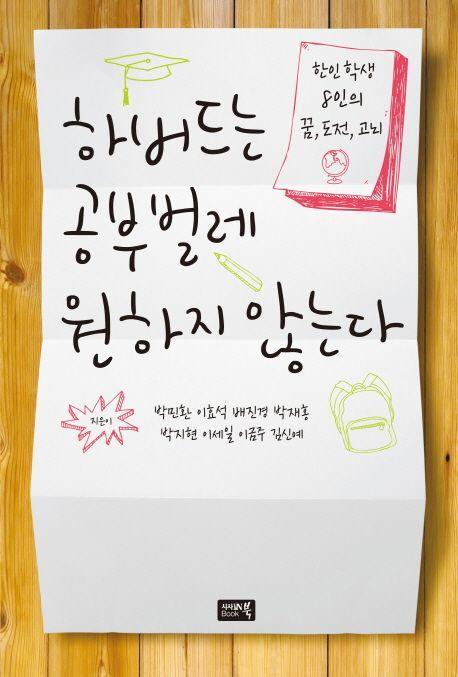 한인 학생
8인의
꿈, 도전, 고뇌
하버드는
공부벌레
원하지 않는다
지은이
박민환 이효석 배진경 박재홍
박지현 이세일 이금주 김신예
시사IN북
Book